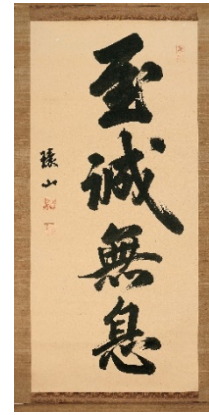 至誠無息
環山